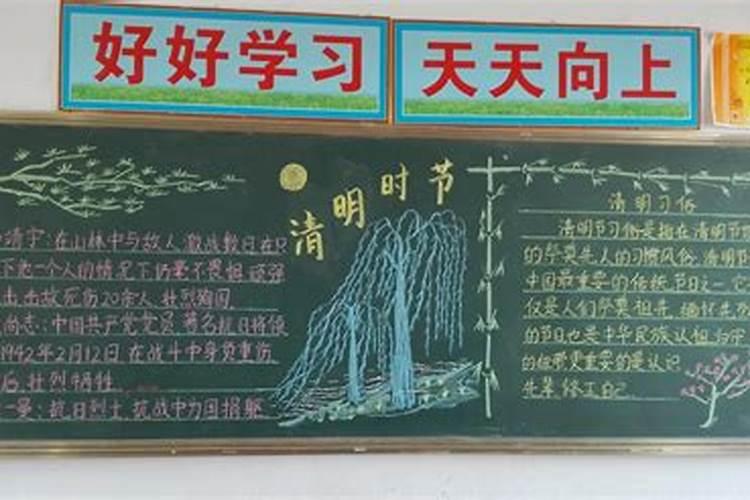 好好学习
天天向上
清明时节
靖宇:在山林中与敌人激战数日在只
下他一个人的情况下仍毫不畏惧顽强
击,击敌死伤20余人,壮烈殉国
尚志:中国共产党党员,著名抗日将领
1942年2月12日在战斗中身负重伤
后,壮烈牺牲
一曼:抗日烈士,抗战中为国捐躯
清明习俗
清明节习俗是指在清明节
的祭奠先人的习惯风俗,清明节
中国最重要的传统节日之一
仅是人们祭奠祖先,缅怀先
的节日也是中华民族认祖归宗
的纽带更重要的是认识
先辈
自己